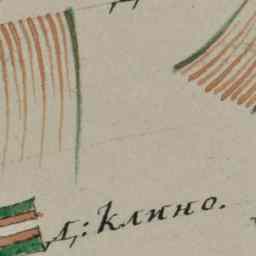 Д: клино.